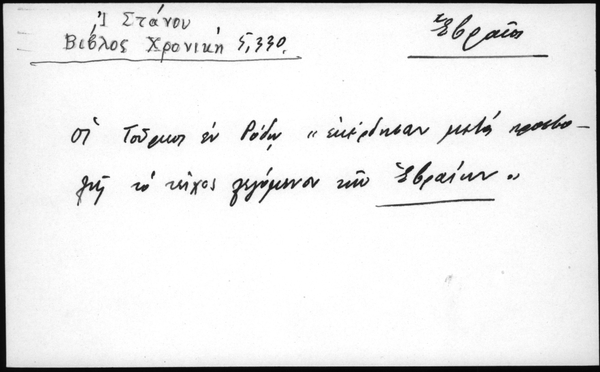 Ἰ Στάνου
Βίβλος Χρονική 5,330.
Ἑβραῖοι
οἱ Τοῦρκοι ἐν Ρόδῳ « ἐκέρδησαν μετὰ προσβο-
λῆς τὸ τεῖχος λεγόμενον τῶν Ἑβραίων »